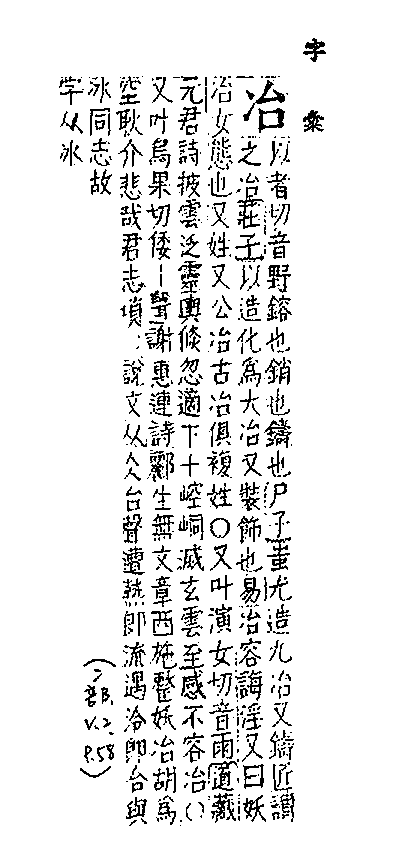 字彙
冶以者切音野鎔也銷也鑄也尸子蚩尤造九冶又鑄匠謂
之冶莊子以造化爲大冶又裝飾也易冶容誨淫又曰妖
冶女態也又姓又公冶古冶俱複姓○又叶演女切音雨道藏
元君詩披雲泛靈輿倏忽適下土崆峒滅玄雲至感不容冶○
又叶烏果切倭上聲謝惠連詩酈生無文章西施整妖冶胡爲
空耿介悲哉君志瑣:說文从仌台聲遭熱即流遇冷即合與
冰同志故
字从冰
(冫部.
V.2.
P.58)